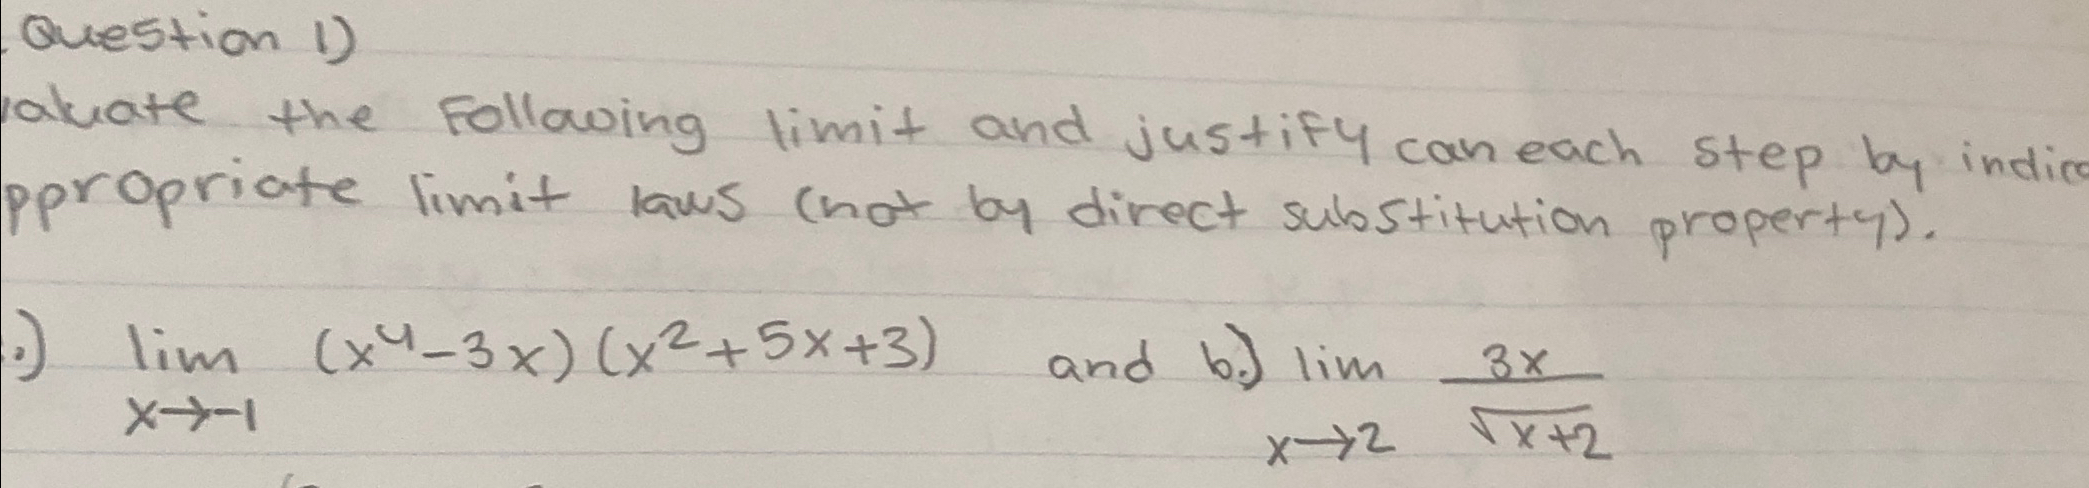 Question 1)
aluate the Following limit and justify can each step by indica
ppropriate limit laws (not by direct substitution property).
.) lim (x⁴-3x)(x²+5x+3) and b.) lim 3x
x→-1 x→2 √x+2